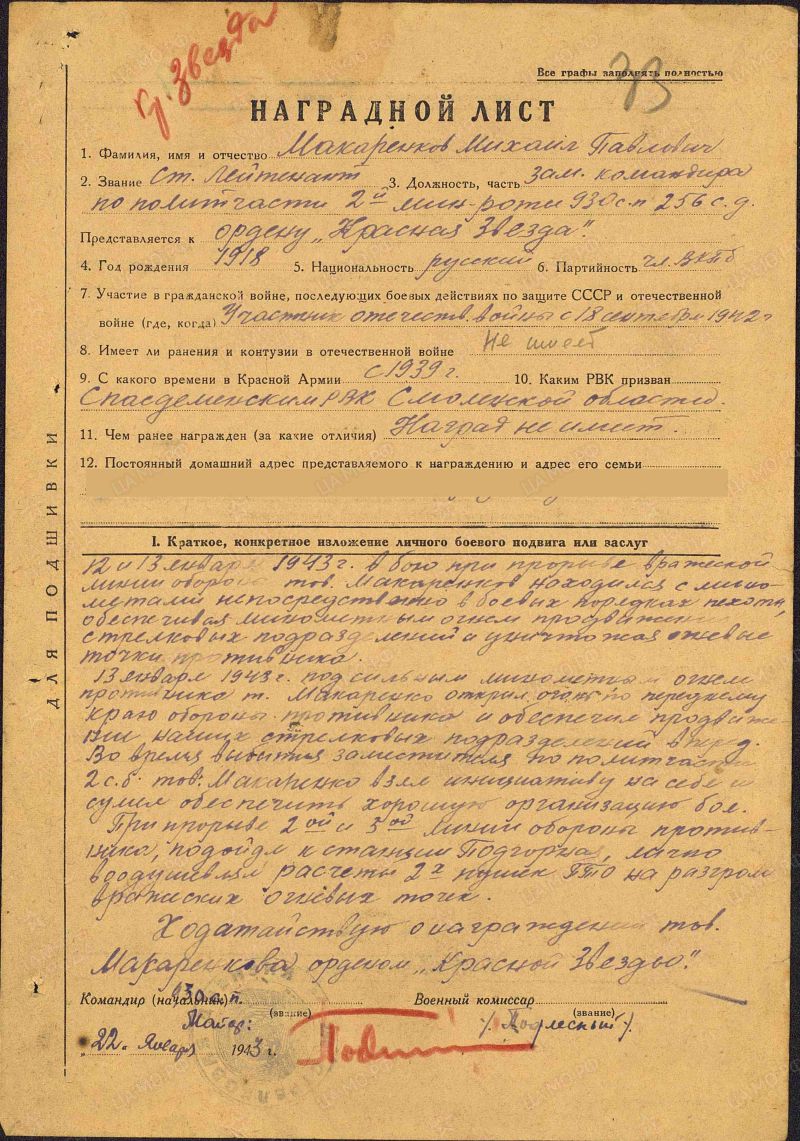 кр. звезда
Все графы заполнять полностью
33
НАГРАДНОЙ ЛИСТ
1. Фамилия, имя и отчество Макаренков Михаил Павлович
2. Звание Ст. Лейтенант 3. Должность, часть зам. командира
по политчасти 2й мин-роты 930 с.п 256 с.д.
Представляется к ордену „Красная Звезда".
4. Год рождения 1918 5. Национальность русский 6. Партийность чл. ВКПб
7. Участие в гражданской войне, последующих боевых действиях по защите СССР и отечественной
войне (где, когда) Участник отечеств. войны с 18 сентября 1942 г
8. Имеет ли ранения и контузии в отечественной войне Не имеет
9. С какого времени в Красной Армии с 1939 г. 10. Каким РВК призван
Спасдеменским РВК Смоленской области.
11. Чем ранее награжден (за какие отличия) Наград не имеет.
12. Постоянный домашний адрес представляемого к награждению и адрес его семьи
ДЛЯ ПОДШИВКИ
I. Краткое, конкретное изложение личного боевого подвига или заслуг
12 и 13 января 1943 г. в бою при прорыве вражеской
линии обороны тов. Макаренков находился с мино-
метами непосредственно в боевых порядках пехоты,
обеспечивая минометным огнем продвижение
стрелковых подразделений и уничтожая огневые
точки противника.
13 января 1943 г. под сильным минометным огнем
противника т. Макаренко открыл огонь по переднему
краю обороны противника и обеспечил продвиже-
нии наших стрелковых подразделений вперед.
Во время выбытия заместителя по политчасти
2 с.б. тов. Макаренко взял инициативу на себя и
сумел обеспечить хорошую организацию боя.
При прорыве 2ой и 3ой линии обороны против-
ника, подойдя к станции Подгорная, лично
воодушевлял расчеты 2х пушек ПТО на разгром
вражеских огневых точек.
Ходатайствую о награждении тов.
Макаренкова орденом „Красной Звезды".
Командир (начальник) 930 с.п. Военный комиссар
(звание) (звание)
Майор: /Подлесный/.
„22" Января 1943 г.